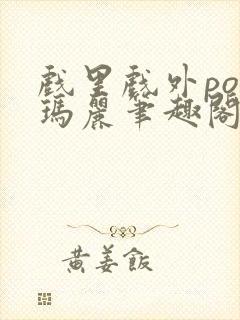 戲里戲外po
瑪麗筆趣閣
黄姜飯